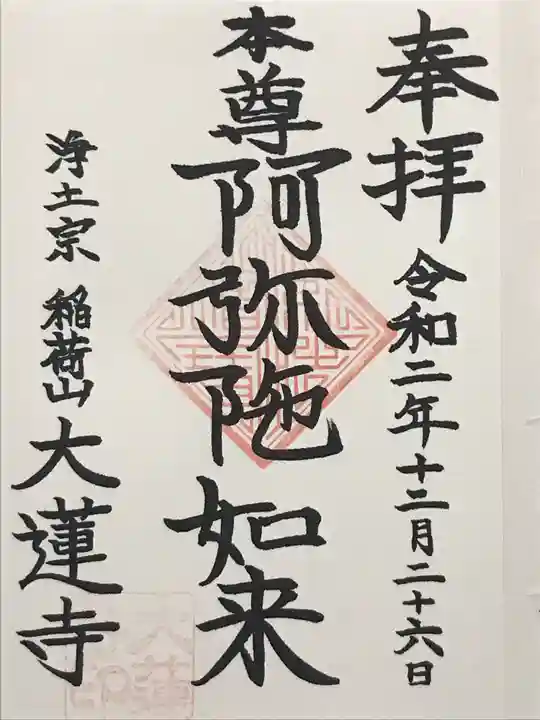 奉拝 令和二年十二月二十六日
本尊 阿弥陀如来
浄土宗 稲荷山 大蓮寺